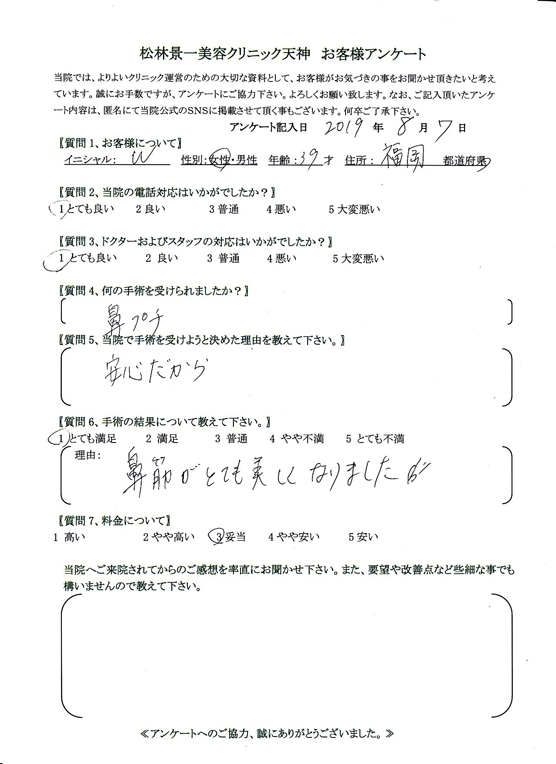 松林景一美容クリニック天神　お客様アンケート
当院では、よりよいクリニック運営のための大切な資料として、お客様がお気づきの事をお聞かせ頂きたいと考え
ています。誠にお手数ですが、アンケートにご協力下さい。よろしくお願い致します。なお、ご記入頂いたアンケ
ート内容は、匿名にて当院公式のSNSに掲載させて頂く事もございます。何卒ご了承下さい。
アンケート記入日　2019　年　8　月　7　日
【質問1、お客様について】
イニシャル：　W　性別：女性・男性　年齢：39才　住所：　福岡　都道府県
【質問2、当院の電話対応はいかがでしたか？】
1とても良い　2良い　3普通　4悪い　5大変悪い
【質問3、ドクターおよびスタッフの対応はいかがでしたか？】
1とても良い　2 良い　3 普通　4悪い　5大変悪い
【質問4、何の手術を受けられましたか？】
鼻プチ
【質問5、当院で手術を受けようと決めた理由を教えて下さい。】
安心だから
【質問6、手術の結果について教えて下さい。】
1とても満足　2 満足　3 普通　4 やや不満　5 とても不満
理由：
鼻筋がとても美しくなりました
【質問7、料金について】
1 高い　2やや高い　3妥当　4やや安い　5安い
当院へご来院されてからのご感想を率直にお聞かせ下さい。また、要望や改善点など些細な事でも
構いませんので教えて下さい。
≪アンケートへのご協力、誠にありがとうございました。≫